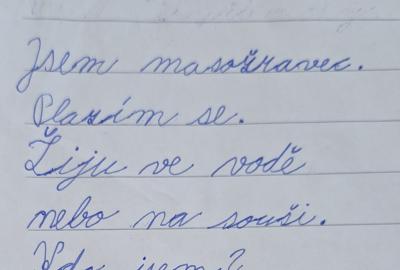 Jsem masožravec.
Plazím se.
Žiju ve vodě
nebo na souši.
Kdo jsem?